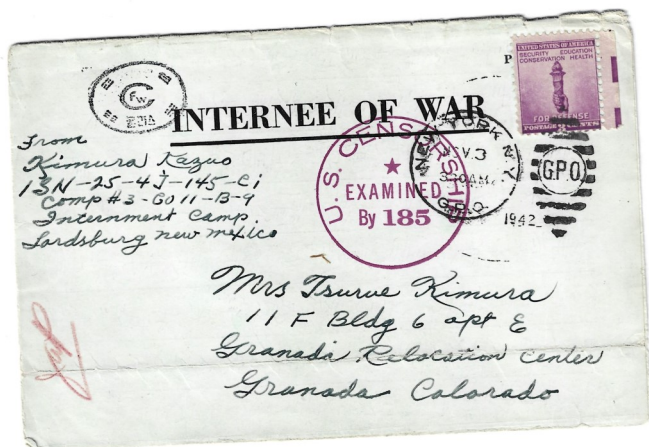 UNITED STATES OF AMERICA
SECURITY EDUCATION
CONSERVATION HEALTH
FOR DEFENSE
POSTAGE CENTS
P
C
FW
INTERNEE OF WAR
NEW YORK N.Y.
NOV 3
AM
G.P.O.
1942
G.P.O.
U.S. CENSORSHIP
EXAMINED
By 185
From
Kimura Kazuo
13N-25-4J-145-Ci
Comp #3-Co 11-B-9
Internment Camp.
Lordsburg new mexico
Mrs Tsurue Kimura
11 F Bldg 6 apt E
Granada Relocation Center
Granada Colorado
Jap